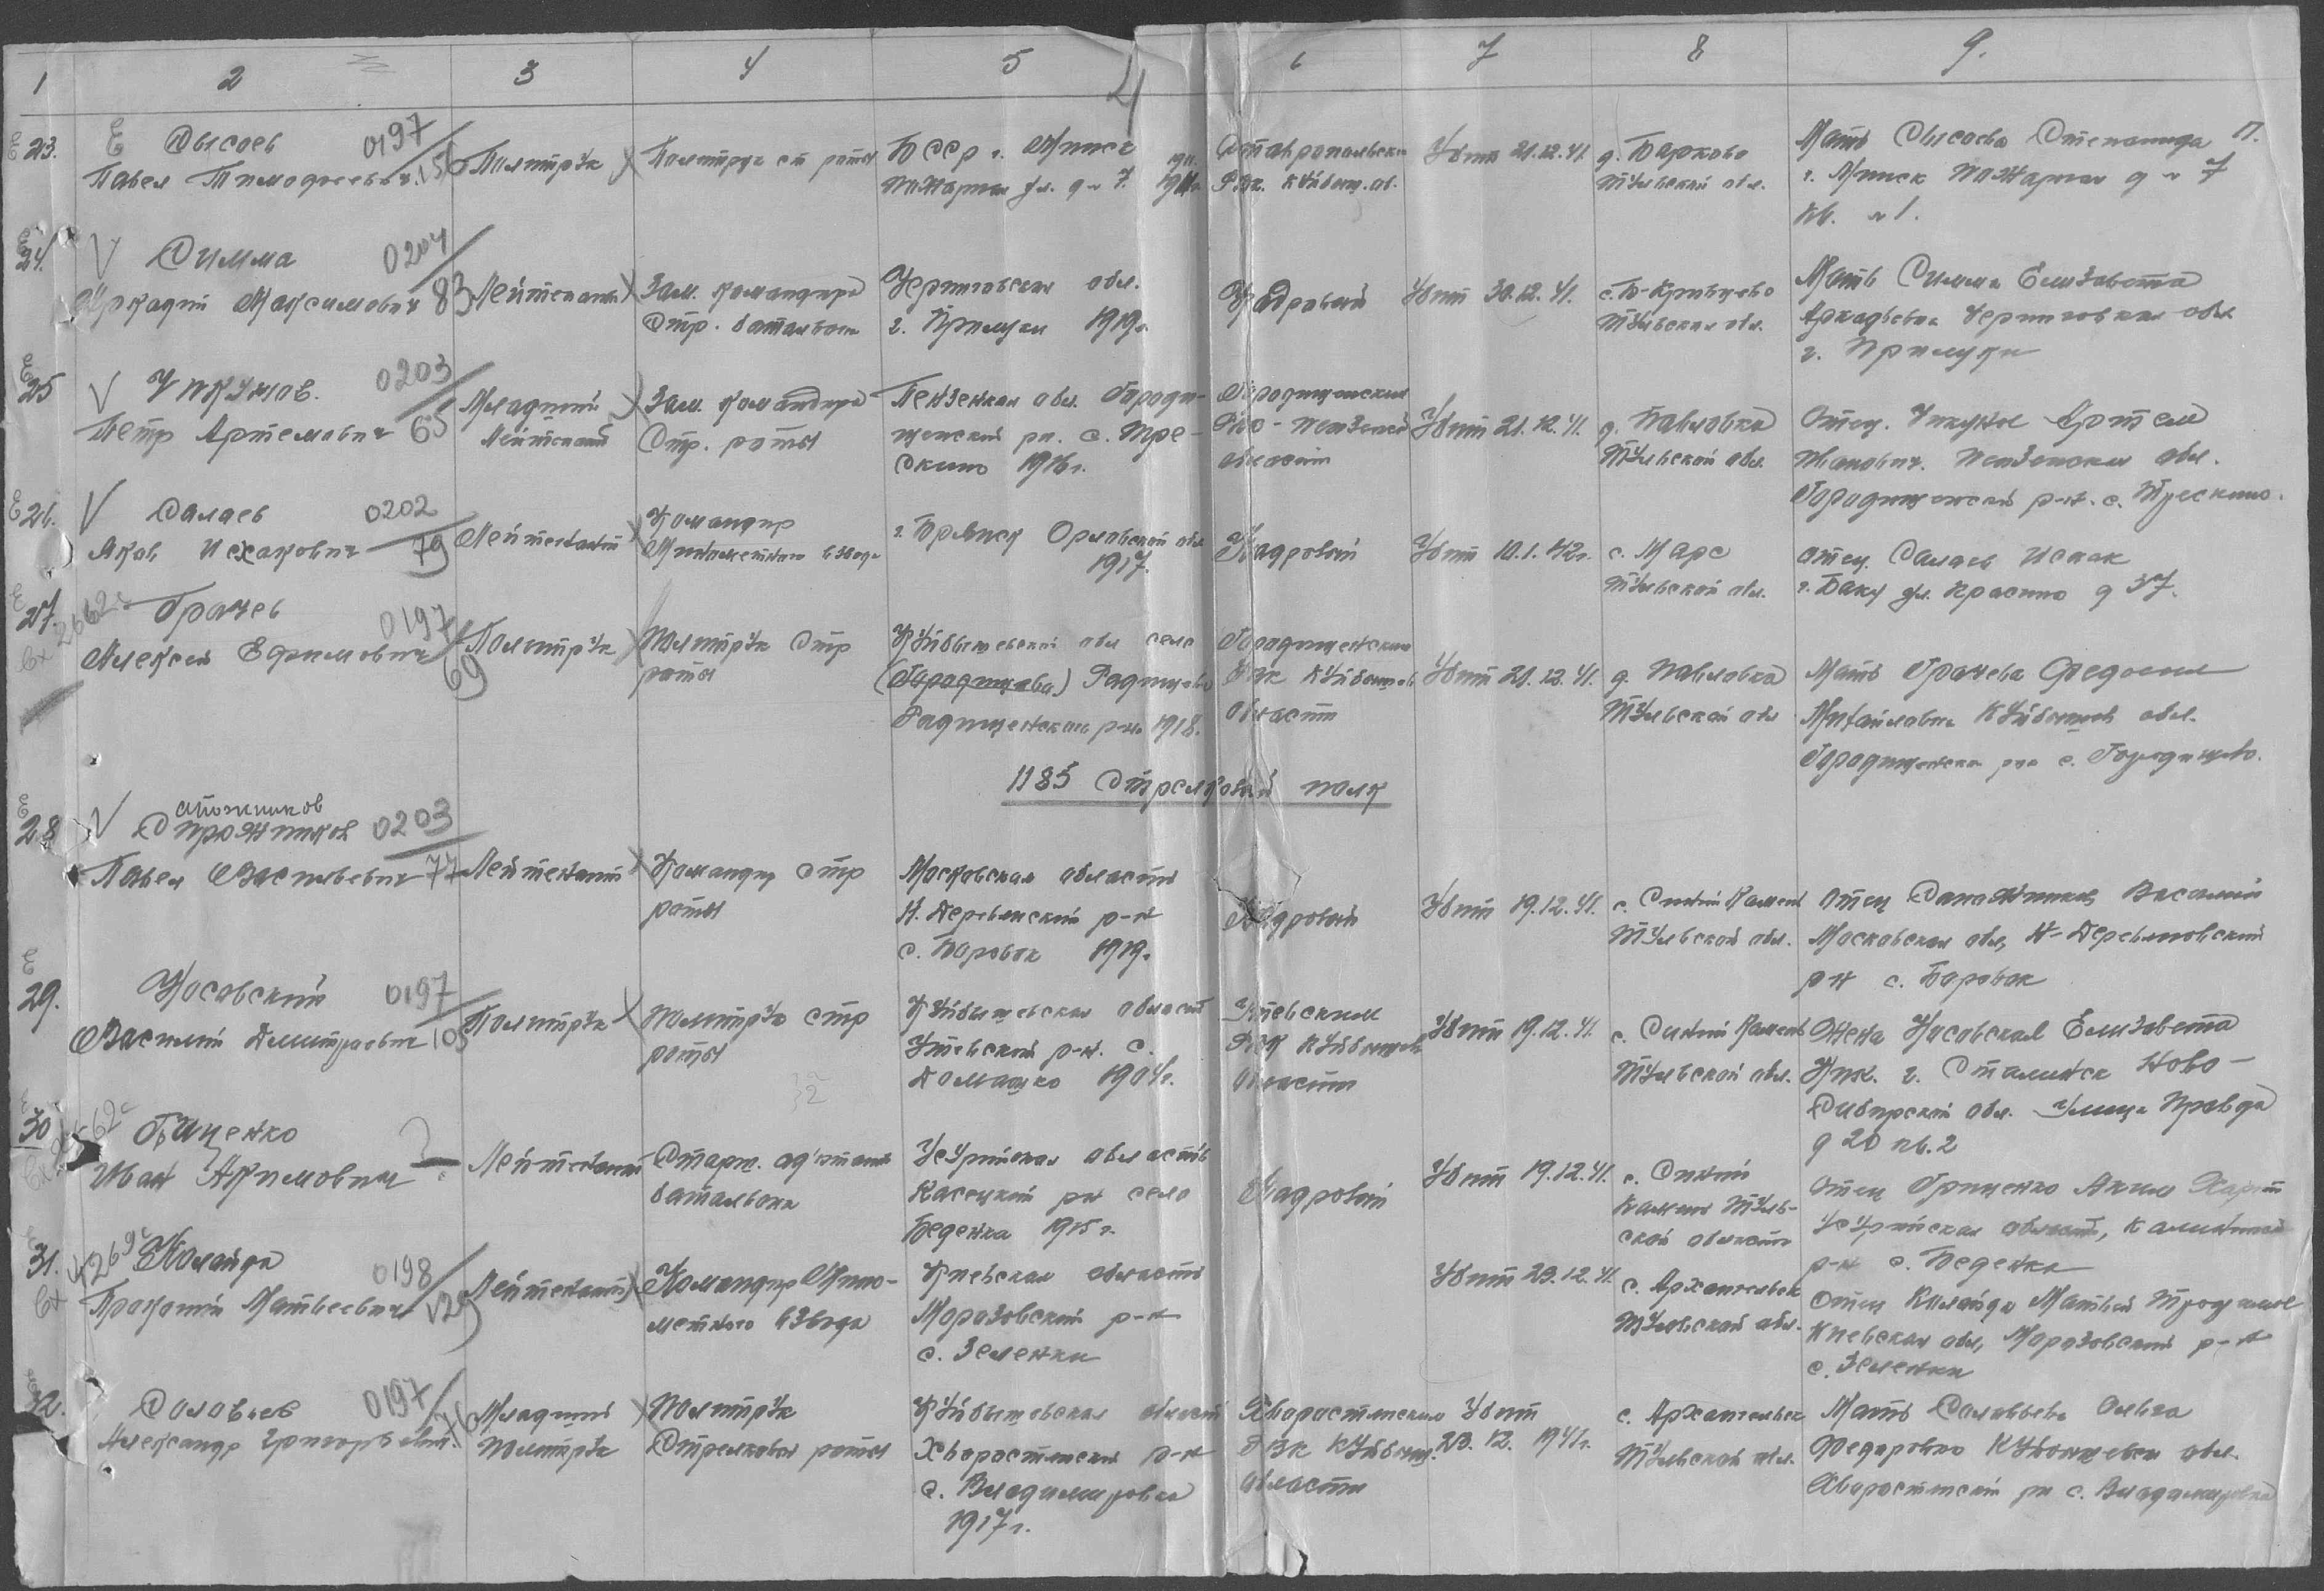 1 2 3 4 5 6 7 8 9.
23. Сысоев 0197 Политрук Политрук ст роты БССР г. Минск Ставропольск Убит 21.12.41 д. Барково Мать Сысоева Степанида П.
Павел Тимофеевич 156 Пожарная ул. д № 7. РВК. Куйбыш. об. Тульской обл. г. Минск Пожарная д № 7
кв. № 1.
24. Симма 0204 Лейтенант Зам. командира Черниговская обл. Кадровый Убит 30.12.41. Тульская обл. Мать Симма Елизавета
Аркадий Максимович 83 Стр. батальона г. Прилуки 1919г. Аркадьевна Черниговская обл
г. Прилуки
25 Чикунов. 0203 Младший Зам. командира Пензенская обл. Городи- Городищенским Убит 21.12.41. д. Павловка Отец. Чикунов Артем
Петр Артемович 65 Лейтенант Стр. роты щенский рн. с. Тре- РВК - Пензенской Тульской обл Иванович. Пензенская обл.
скино 1916г. области Городищенский р-н. с. Трескино.
26. Салаев 0202 Лейтенант Командир г. Брянск Орловской обл Кадровый Убит 10.1.42г. с. Марс отец. Салаев Исаак
Яков Исхакович 79 Минометного взвода 1917. Тульской обл. г. Баку ул. Красина д 37.
27. Грачев 0197 Политрук Политрук Стр Куйбышевской обл село Городищенским Убит 21.12.41. д. Павловка Мать Грачева Федосия
Алексей Ефимович 69 роты (Городищева) Радищево РВК Куйбышев Тульской обл Михайловна Куйбышев обл.
Радищенском р-не 1918. области Городищенском рне с. Городищево.
1185 Стрелковый полк
28 Сапожников
Спрожников 0203 Лейтенант Командир стр Московская область Кадровый Убит 19.12.41. с. Синий Камень Отец Сапожников Василий
Павел Васильевич 77 роты Н. Деревенский р-н Тульской обл. Московская обл, Н-Деревновский
с. Боровок 1919г. рн с. Боровок
29. Носовский 0197 Политрук Политрук стр Куйбышевская област Утевским Убит 19.12.41. с. Синий Камень Жена Носовская Елизавета
Василий Дмитриевич 105 роты Утевский р-н. с. РВК Куйбышев Тульской обл. Ник. г. Сталинск Ново-
Домашко 1904г. области Сибирской обл. Улица Правда
д 20 кв. 2
30 Гриценко Лейтенант Старш. ад'ютант Уссурийская область Кадровый Убит 19.12.41. с. Синий отец Гриценко Аким
Иван Акимович ? батальона рн село Камень Туль- Уссурийская область, Калининский
Беденка 1915г. ской области р-н с. Беденка
31. Колайда 0198 Лейтенант Командир Мино- Киевская область Убит 23.12.41. с. Архангельск отец Колайда Матвей
Прокопий Матвеевич 129 метного взвода Морозовский р-н Тульской обл. Киевская обл, Морозовский р-н
с. Зеленки с. Зеленки
32. Соловьев 0197 Младший Политрук Куйбышевская област Хворостянским Убит с. Архангельск Мать Соловьева Ольга
Александр Григорьевич. 76 Политрук Стрелковой роты Хворостянский р-н РВК Куйбыш. 23.12.1941г. Тульской обл. Федоровна Куйбышевск обл.
с. Владимировка области Хворостянский рн с. Владимировка
1917г.